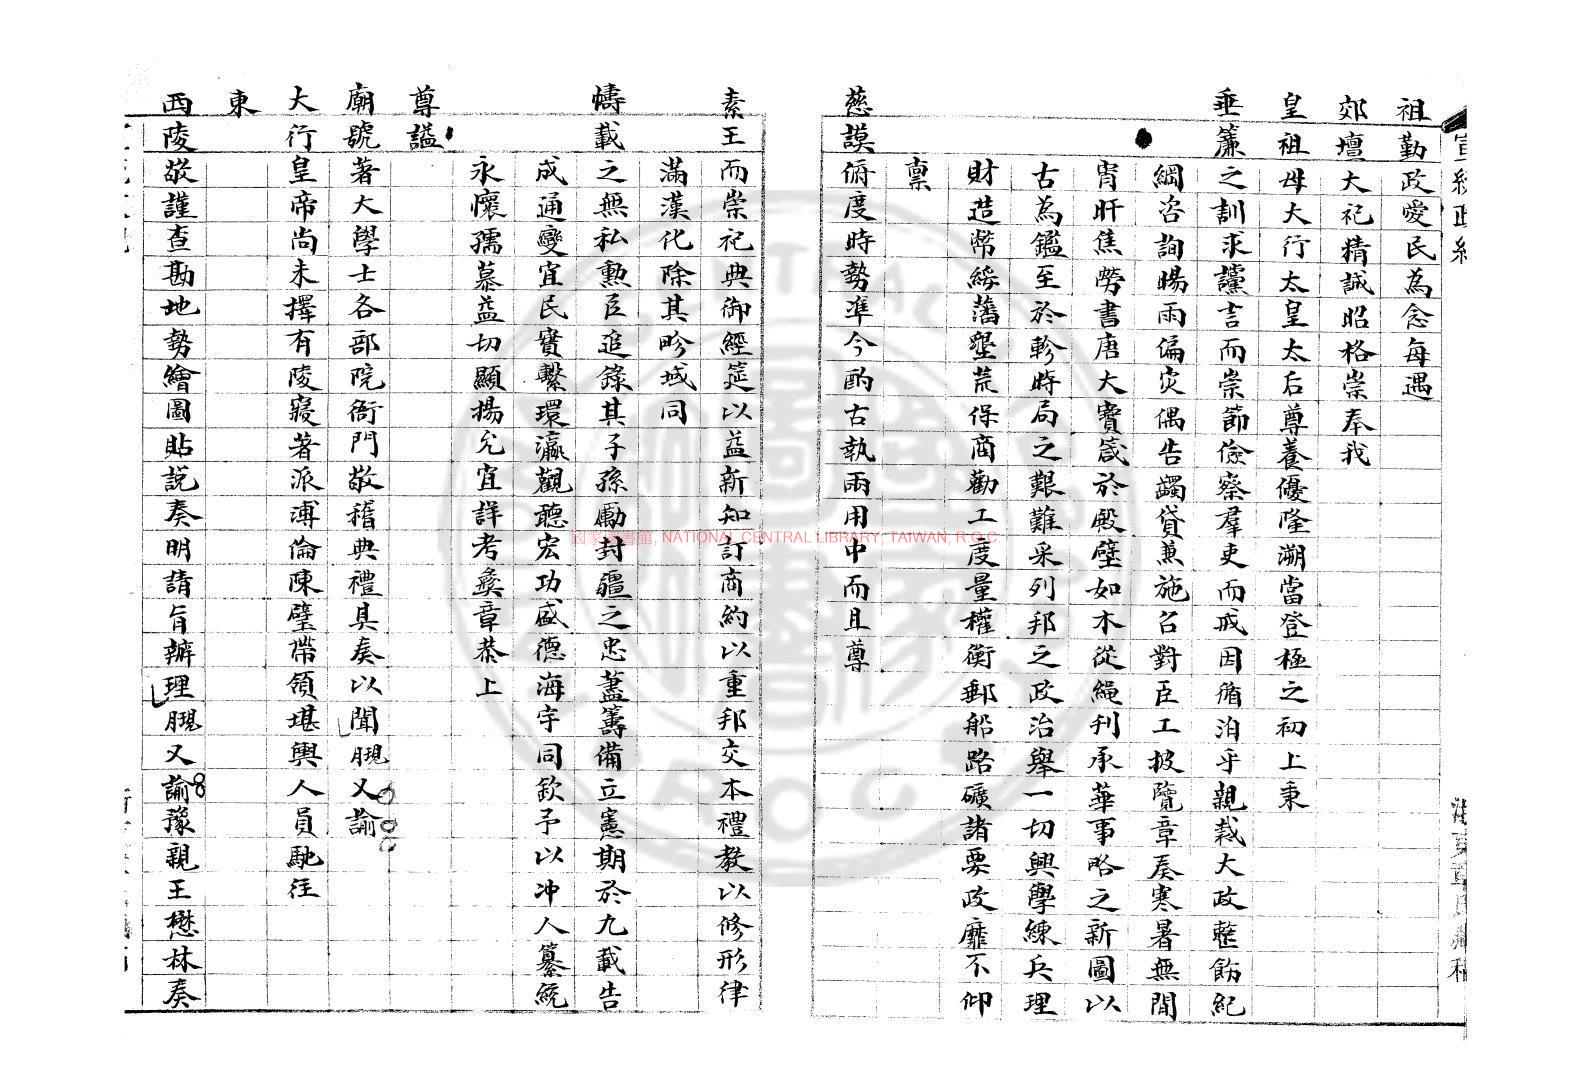 宣統政紀
祖勤政愛民為念每遇
郊壇大祀精誠昭格崇奉我
皇祖母大行太皇太后尊養優隆溯當登極之初上秉
垂簾之訓求讜言而崇節儉察羣吏而戒因循洎乎親裁大政整飭紀
綱咨詢暘雨偏災偶告蠲貸兼施召對臣工披覽章奏寒暑無間
宵旰焦勞書唐大寶箴於殿壁如木從繩刊承華事略之新圖以
古為鑑至於軫時局之艱難采列邦之政治舉一切興學練兵理
財造幣綏藩墾荒保商勸工度量權衡郵船路礦諸要政靡不仰
稟
慈謨俯度時勢準今酌古執兩用中而且尊
素王而崇祀典御經筵以益新知訂商約以重邦交本禮教以修形律
滿漢化除其畛域同
幬載之無私勳臣追錄其子孫勵封疆之忠藎籌備立憲期於九載告
成通變宜民實繫環瀛觀聽宏功盛德海宇同欽予以沖人纂統
永懷孺慕益切顯揚允宜詳考彝章恭上
尊諡
廟號著大學士各部院衙門敬稽典禮具奏以聞覞又諭
大行皇帝尚未擇有陵寢著派溥倫陳璧帶領堪輿人員馳往
東
西陵敬謹查勘地勢繪圖貼說奏明請旨辦理覞又諭豫親王懋林奏
國家圖書館, NATIONAL CENTRAL LIBRARY, TAIWAN, R.O.C.